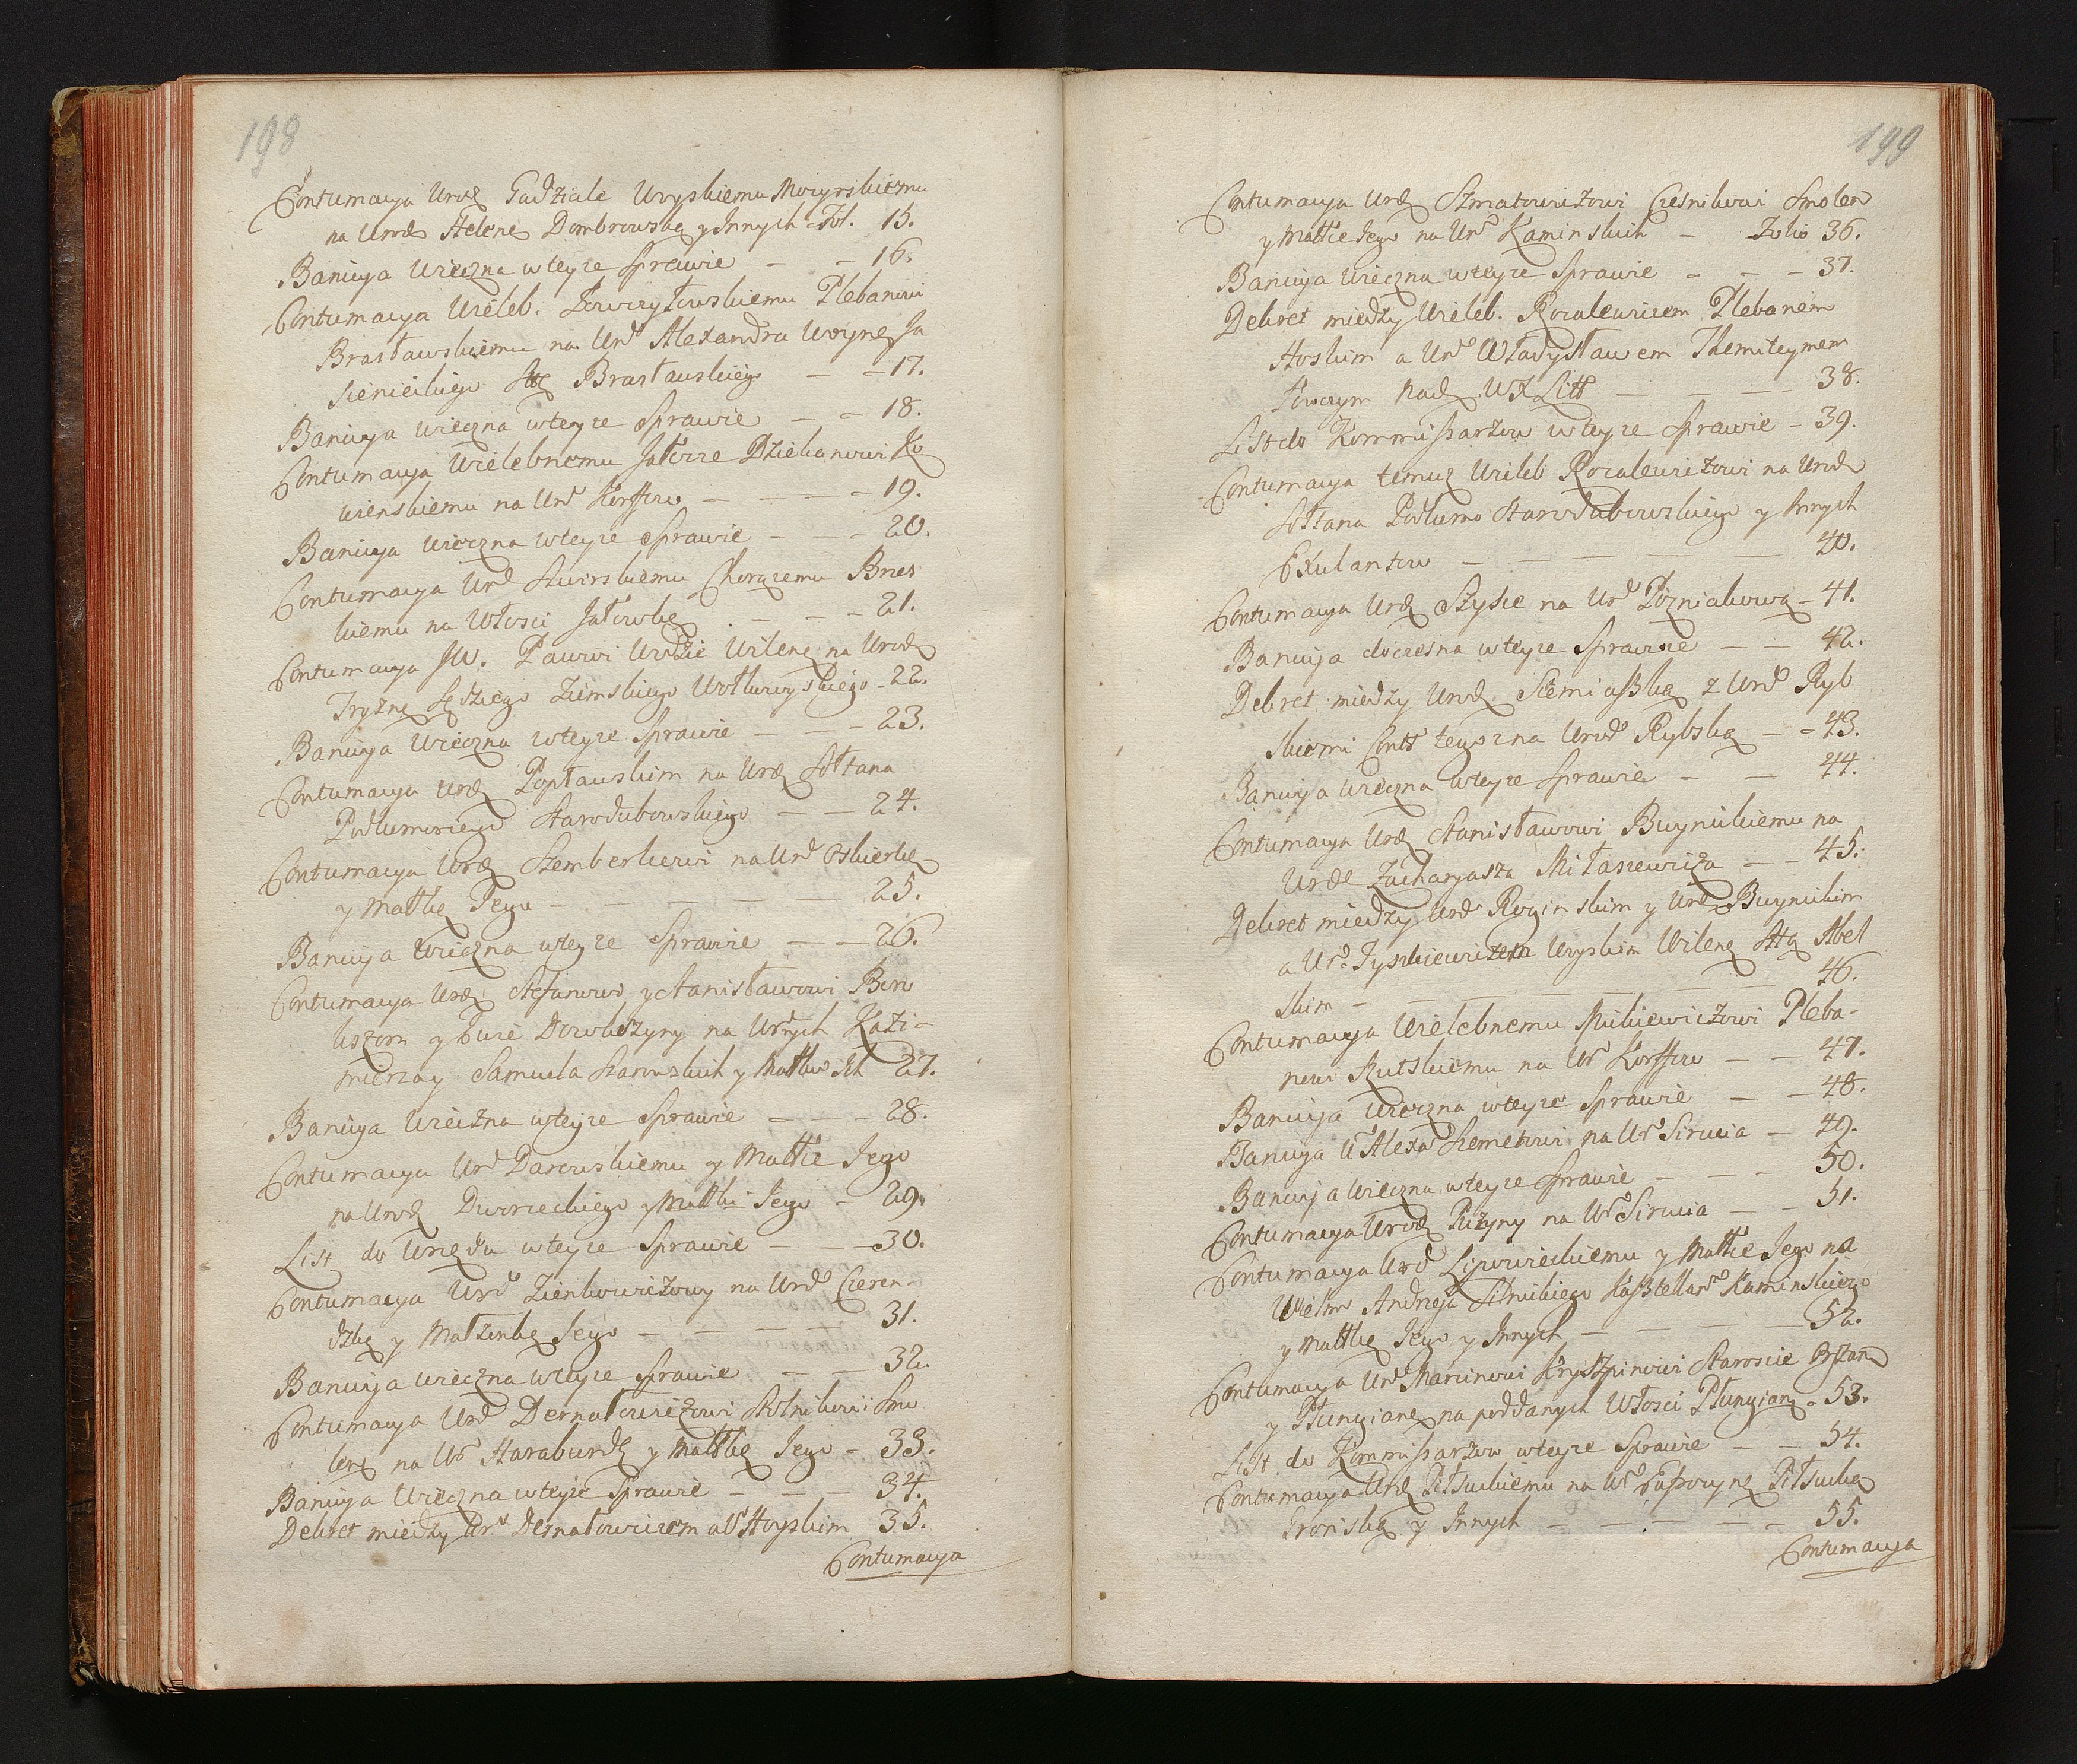 198
Contumacya Urodz Gadziale Woyskiemu Mozyrskiemu
na Urodz Helenę Dombrowską y Innych Fol. 15.
Banicya wieczna w teyze Sprawie – – 16.
Contumacya Wieleb. Plebanowi
Brasławskiemu na Urd Alexandra Woynę Ja
sienieckiego Brasławskiego – – 17.
Banicya wieczna w teyze Sprawie – – 18.
Contumacya Wielebnemu Jatorze Dziekanowi Ko
wienskiemu na Urd Korffow – – – – 19.
Banicya wieczna w teyze Sprawie – – – 20.
Contumacya Urd Swirskiemu Chorązemu Brzes
kiemu na Włosci Jałowkę – – – 21.
Contumacya JW. Pacowi Wdzie Wilenq na Urodz
Tryznę Sędziego Ziemskiego Wołkowyskiego – 22.
Banicya wieczna w teyze Sprawie – – – 23.
Contumacya Urdz Popławskim na Urdz Sołtana
Podkomorzego Starodubowskiego – – 24.
Contumacya Urdz Szemberkowi na Urd Oskierkę
y Małkę Jego – – – – – – 25.
Banicya wieczna w teyze Sprawie – – 26.
Contumacya Urdz Stefanowi y Stanisławowi Bow
kszom y Ewie Dowkszyny na Urdnych Kazi-
mierza y Samuela y Małkow Ich 27.
Banicya Wieczna w teyze Sprawie – – – 28.
Contumacya Urd Darewskiemu y Małce Jego
na Urodz Dworzeckiego y Małki Jego – 29.
List do Urzędu w teyze Sprawie – – – 30.
Contumacya Urd Zienkowiczowy na Urd Czeren-
dzkę y Małzonkę Jego – – – – 31.
Banicya wieczna w teyze Sprawie – – 32.
Contumacya Urd Dernałowiczowi Stolnikowi Smo
lenq na Ur Haraburdę y Małkę Jego – 33.
Banicya Wieczna w teyze Sprawie – – – 34.
Dekret między Ur. Dernałowiczem a Ur Hoyskim 35.
Contumacya
199
Contumacya Urdz Szmatowiczowi Czesnikowi Smolen
y Małce Jego na Urd Kaminskich – Folio 36.
Banicya wieczna w teyze Sprawie – – – 37.
Dekret między Wieleb. Rocalewiczem Plebanem
Hoskim a Urd Władysławem
Łowczym Nad W X Litt – – – – 38.
List do Kommissarzow w teyze Sprawie – 39.
Contumacya temuz Wieleb Rocalewiczowi na Urodz
Sołtana Podkomo Starodubowskiego y Innych
Exulantow – – – – – 40.
Contumacya Urdz Szysce na Urd Pozniakową – 41.
Banicya doczesna w teyze Sprawie – – 42.
Dekret między Urodz Siemiaszką z Urd Ryb
skiemi Contt tegoz na Urod Rybską – – 43.
Banicya wieczna w teyze Sprawie – – 44.
Contumacya Urdz Stanisławowi Buynickiemu na
Urdz Zacharyasza Miłaszewicza – – 45.
Dekret między Urd Roginskim y Urdz Buynickim
a Urd Tyszkiewiczem Woyskim Wilenq Sttą Abel
skim – – – – – – – – 46.
Contumacya Wielebnemu Mickiewiczowi Pleba-
nowi Rutskiemu na Ur Korffow – – 47.
Banicya wieczna w teyze Sprawie – – 48.
Banicya Ur Alexa Szemetowi na Ur Sirucia – 49.
Banicya Wieczna w teyze Sprawie – – – 50.
Contumacya Urodz Puzyny na Ur Sirucia – – 51.
Contumacya Urd Lipowieckiemu y Małce Jego na
Wielm Andrzeja Sitnickiego Kasztellan Kaminskiego
y Małkę Jego y Innych – – – – 52.
Contumacya Urd Marcinowi Kryszpinowi Staroscie Orszan
y Płungianq na poddanych Włosci Płungianq – 53.
List do Kommissarzow w teyze Sprawie – – 54.
Contumacya Urdz Piłsuckiemu na Ur Piłsucką
Tronską y Innych – – – – – 55.
Contumacya